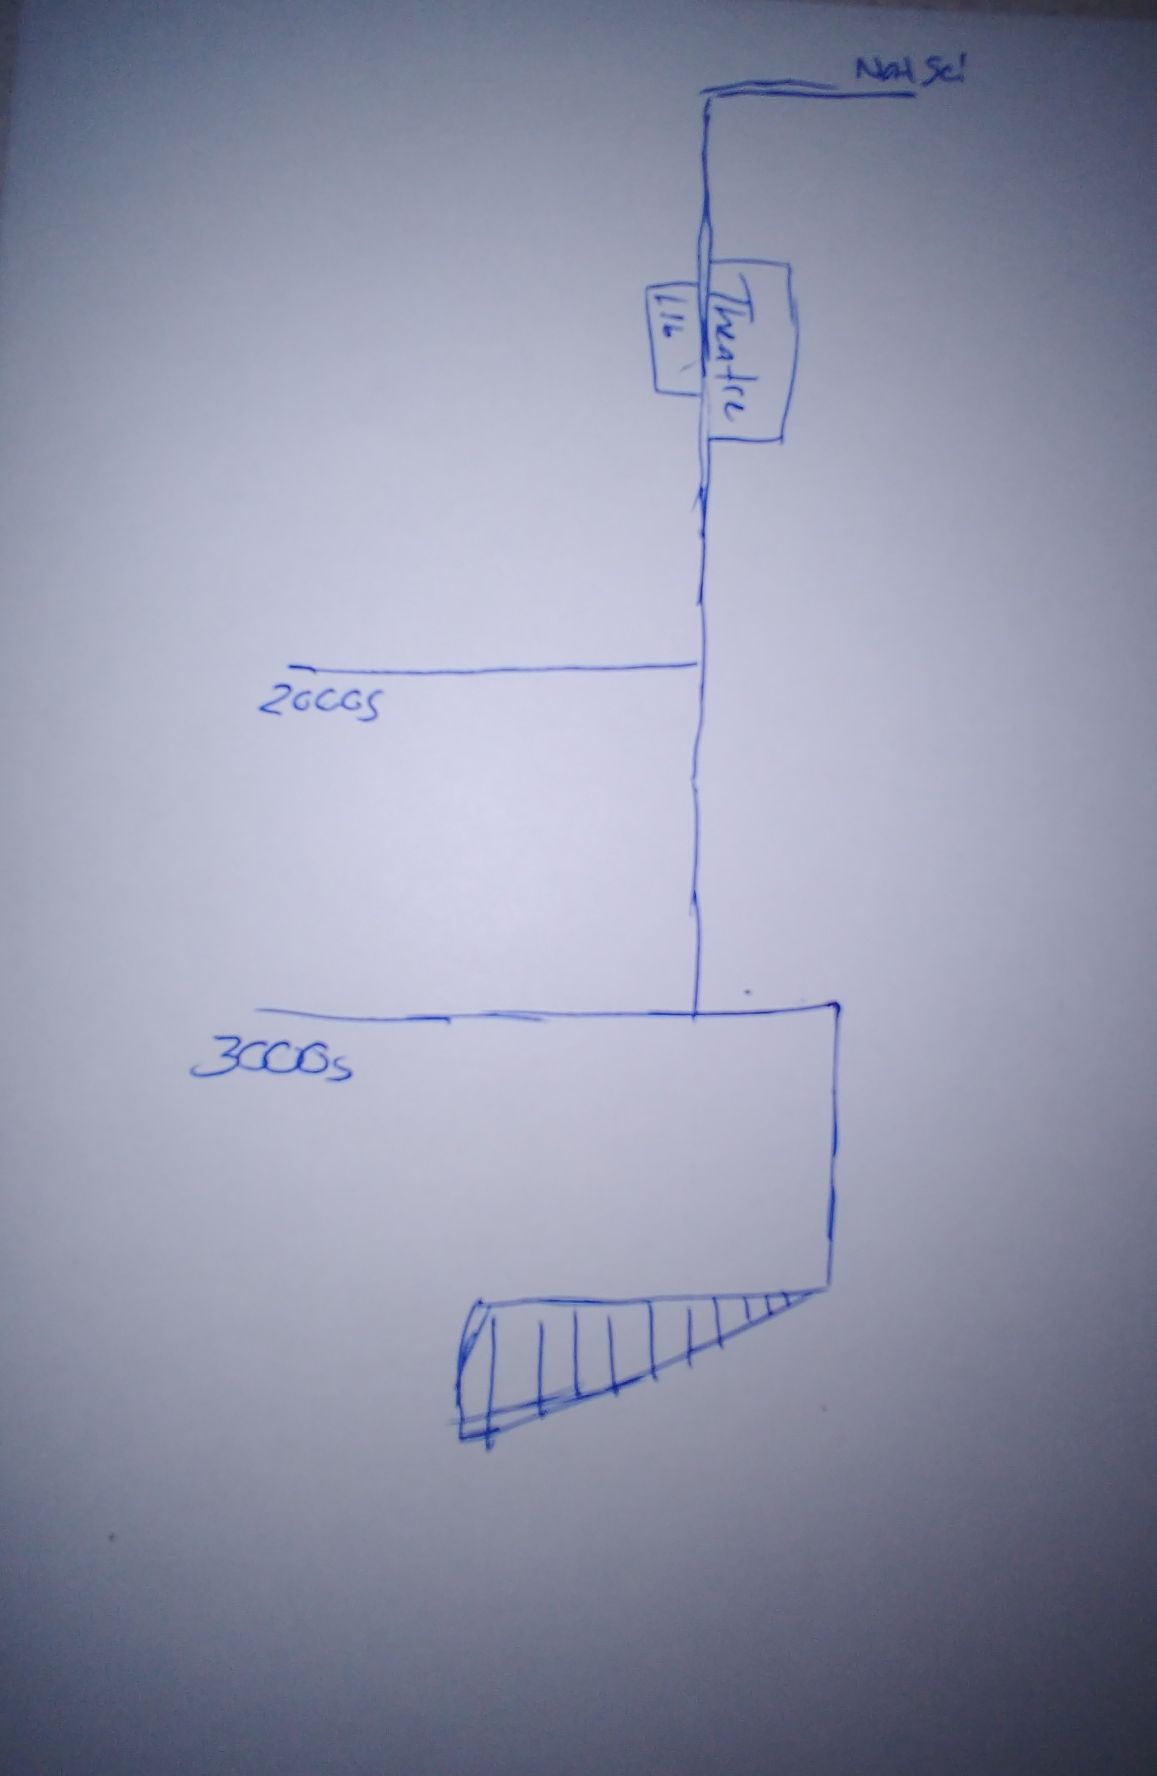 Nat Sci
Lib
Theatre
2000s
3000s